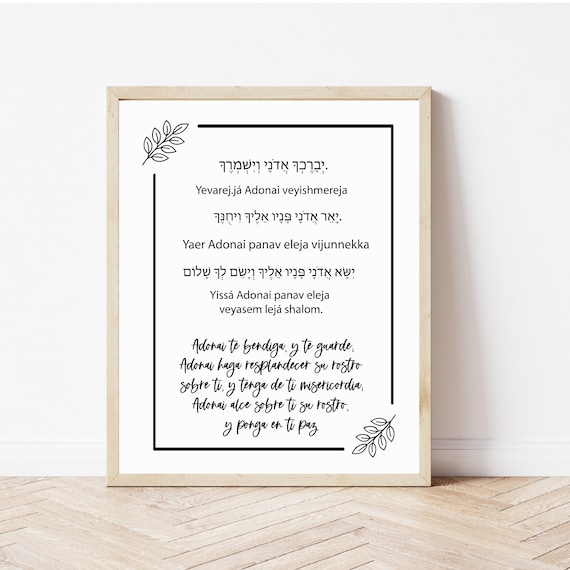 יְבָרֶכְךָ אֲדֹנָי וְיִשְׁמְרֶךָ.
Yevarej.já Adonai veyishmereja
יָאֵר אֲדֹנָי פָּנָיו אֵלֶיךָ וִיחֻנֶּךָּ.
Yaer Adonai panav eleja vijunnekka
יִשָּׂא אֲדֹנָי פָּנָיו אֵלֶיךָ וְיָשֵׂם לְךָ שָׁלוֹם
Yissá Adonai panav eleja
veyasem lejá shalom.
Adonai te bendiga, y te guarde;
Adonai haga resplandecer su rostro
sobre ti, y tenga de ti misericordia;
Adonai alce sobre ti su rostro,
y ponga en ti paz